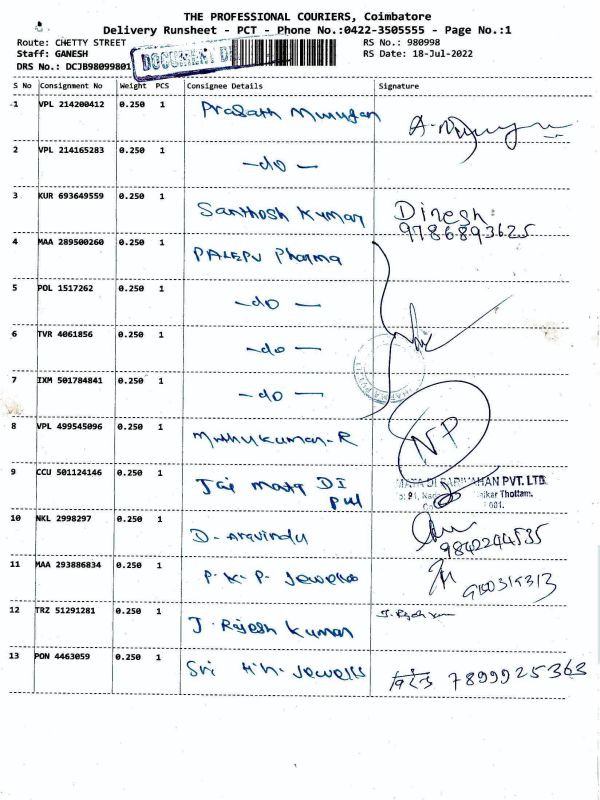 THE PROFESSIONAL COURIERS, Coimbatore
Delivery Runsheet - PCT - Phone No.:0422-3505555 - Page No.:1
Route: CHETTY STREET RS No.: 980998
Staff: GANESH RS Date: 18-Jul-2022
DRS No.: DCJB98099801
DOCUMENT
S No Consignment No Weight PCS Consignee Details Signature
1 VPL 214200412 0.250 1 Prasath Murugan
2 VPL 214165283 0.250 1 -do-
3 KUR 693649559 0.250 1 Santhosh Kumar Dinesh
9786893625
4 MAA 289500260 0.250 1 PALEPU Pharma
5 POL 1517262 0.250 1 -do-
6 TVR 4061856 0.250 1 -do-
7 IXM 501784841 0.250 1 -do-
8 VPL 499545096 0.250 1 Muthukumar-R NP
9 CCU 501124146 0.250 1 Jai mata DI
Pvt
MATA DI PVT. LTD.
Thottam.
001.
10 NKL 2998297 0.250 1 D- Aravindu
9842244535
11 MAA 293886834 0.250 1 P.K.P. Jewells
12 TRZ 51291281 0.250 1 J. Rajesh Kumar J. Rajesh Kumar
13 PON 4463059 0.250 1 Sri H.N. Jewells 7899925363